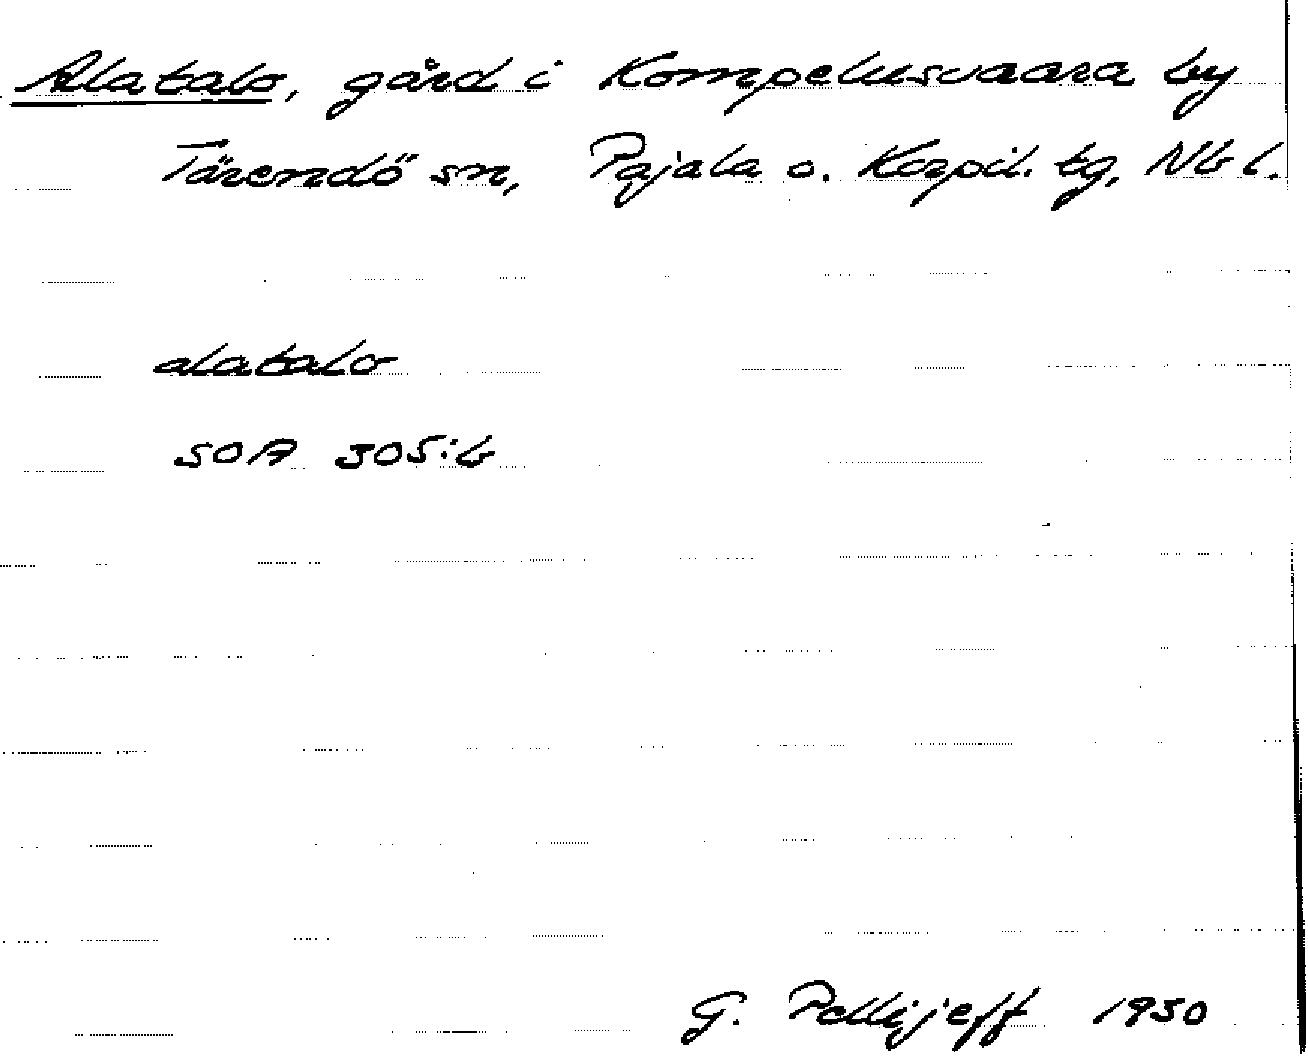 Alatalo, gård i Kompelusvaara by
Tärendö sn, Pajala o. Korpil. tg, Nb l.
alatalo
SOA 305:b
G. Pellijeff 1950